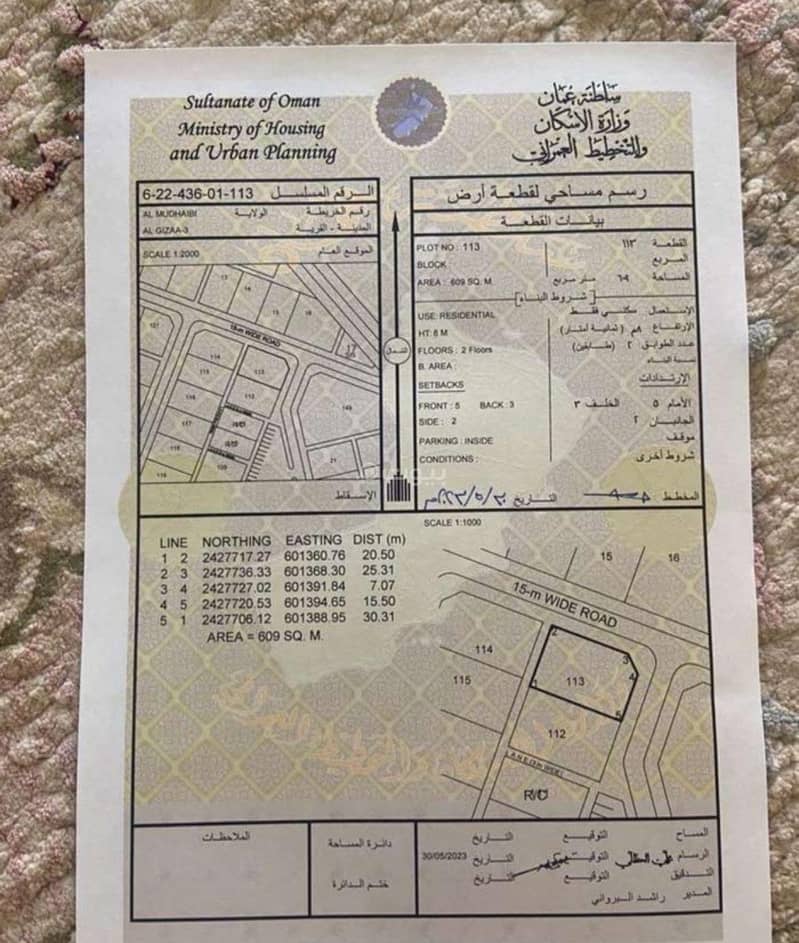 Sultanate of Oman
Ministry of Housing
and Urban Planning
سلطنة عمان
وزارة الإسكان
والتخطيط العمراني
6-22-436-01-113 الرقم المسلسل
AL MUDHAIBI الولاية رقم الخريطة
AL GIZAA-3 المدينة - القرية
SCALE 1:2000 الموقع العام
13
14
15
16
17
121
15-m WIDE ROAD
114
113
115
116
112
117
118
109
119
149
21
الاسقاط
الشمال
رسم مساحي لقطعة أرض
بيانات القطعة
PLOT NO : 113 القطعة ١١٣
BLOCK : المربع
AREA : 609 SQ. M. المساحة ٦٠٩ متر مربع
شروط البناء
USE: RESIDENTIAL الإستعمال: سكني فقط
HT: 8 M الإرتفاع ٨م (ثمانية أمتار)
FLOORS : 2 Floors عدد الطوابق ٢ (طابقين)
B. AREA : نسبة البناء
SETBACKS الإرتدادات
FRONT : 5 BACK : 3 الأمام ٥ الخلف ٣
SIDE : 2 الجانبان ٢
PARKING : INSIDE موقف
CONDITIONS : شروط أخرى
المخطط التاريخ
SCALE 1:1000
LINE NORTHING EASTING DIST (m)
1 2 2427717.27 601360.76 20.50
2 3 2427736.33 601368.30 25.31
3 4 2427727.02 601391.84 7.07
4 5 2427720.53 601394.65 15.50
5 1 2427706.12 601388.95 30.31
AREA = 609 SQ. M.
15
16
15-m WIDE ROAD
114
115
2
3
4
1
113
5
112
LANE (3m WIDE)
الملاحظات
دائرة المساحة
ختم الدائرة
المساح التوقيع التاريخ
الرسام التوقيع التاريخ 30/05/2023
التدقيق التوقيع التاريخ
المدير راشد السيرواني